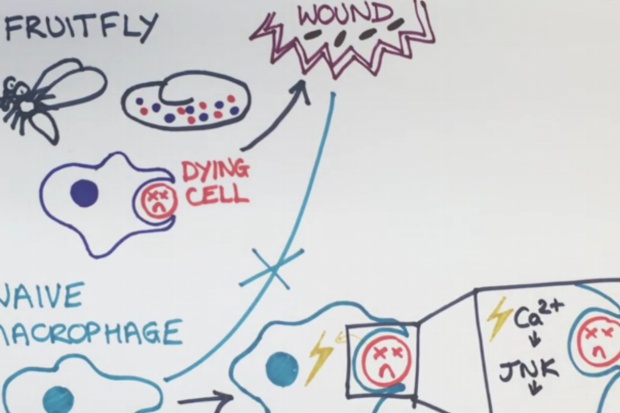 FRUITFLY
WOUND
DYING
CELL
NAIVE
MACROPHAGE
Ca2+
JNK